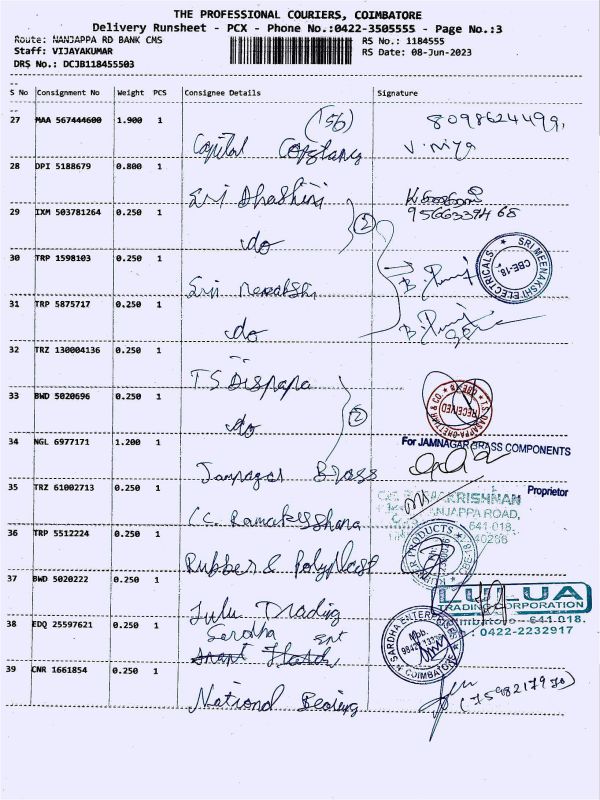 THE PROFESSIONAL COURIERS, COIMBATORE
Delivery Runsheet - PCX - Phone No.:0422-3505555 - Page No.:3
Route: NANJAPPA RD BANK CMS
RS No.: 1184555
Staff: VIJAYAKUMAR
RS Date: 08-Jun-2023
DRS No.: DCJB118455503
S No Consignment No Weight PCS Consignee Details Signature
27 MAA 567444600 1.900 1
(156)
8098624499,
Capital
V. Niya
28 DPI 5188679 0.800 1
Sri Dhashini
29 IXM 503781264 0.250 1
do
(2)
30 TRP 1598103 0.250 1
Sri Meenakshi
SRI MEENAKSHI ELECTRICALS
CBE-18.
31 TRP 5875717 0.250 1
do
32 TRZ 130004136 0.250 1
T.S
33 BWD 5020696 0.250 1
do
(2)
RECEIVED
34 NGL 6977171 1.200 1
Jamnagar Brass
For JAMNAGAR BRASS COMPONENTS
Proprietor
35 TRZ 61002713 0.250 1
C.C. Ramakrishana
KRISHNAN
NJAPPA ROAD,
641 018.
36 TRP 5512224 0.250 1
Rubber & Polyplast
PRODUCTS
37 BWD 5020222 0.250 1
Lulu Trading
TRADING CORPORATION
641 018.
: 0422-2232917
38 EDQ 25597621 0.250 1
Sardha Ent
SARDHA ENTERPRISES
COIMBATORE
39 CNR 1661854 0.250 1
National Bearing
(7598217970)